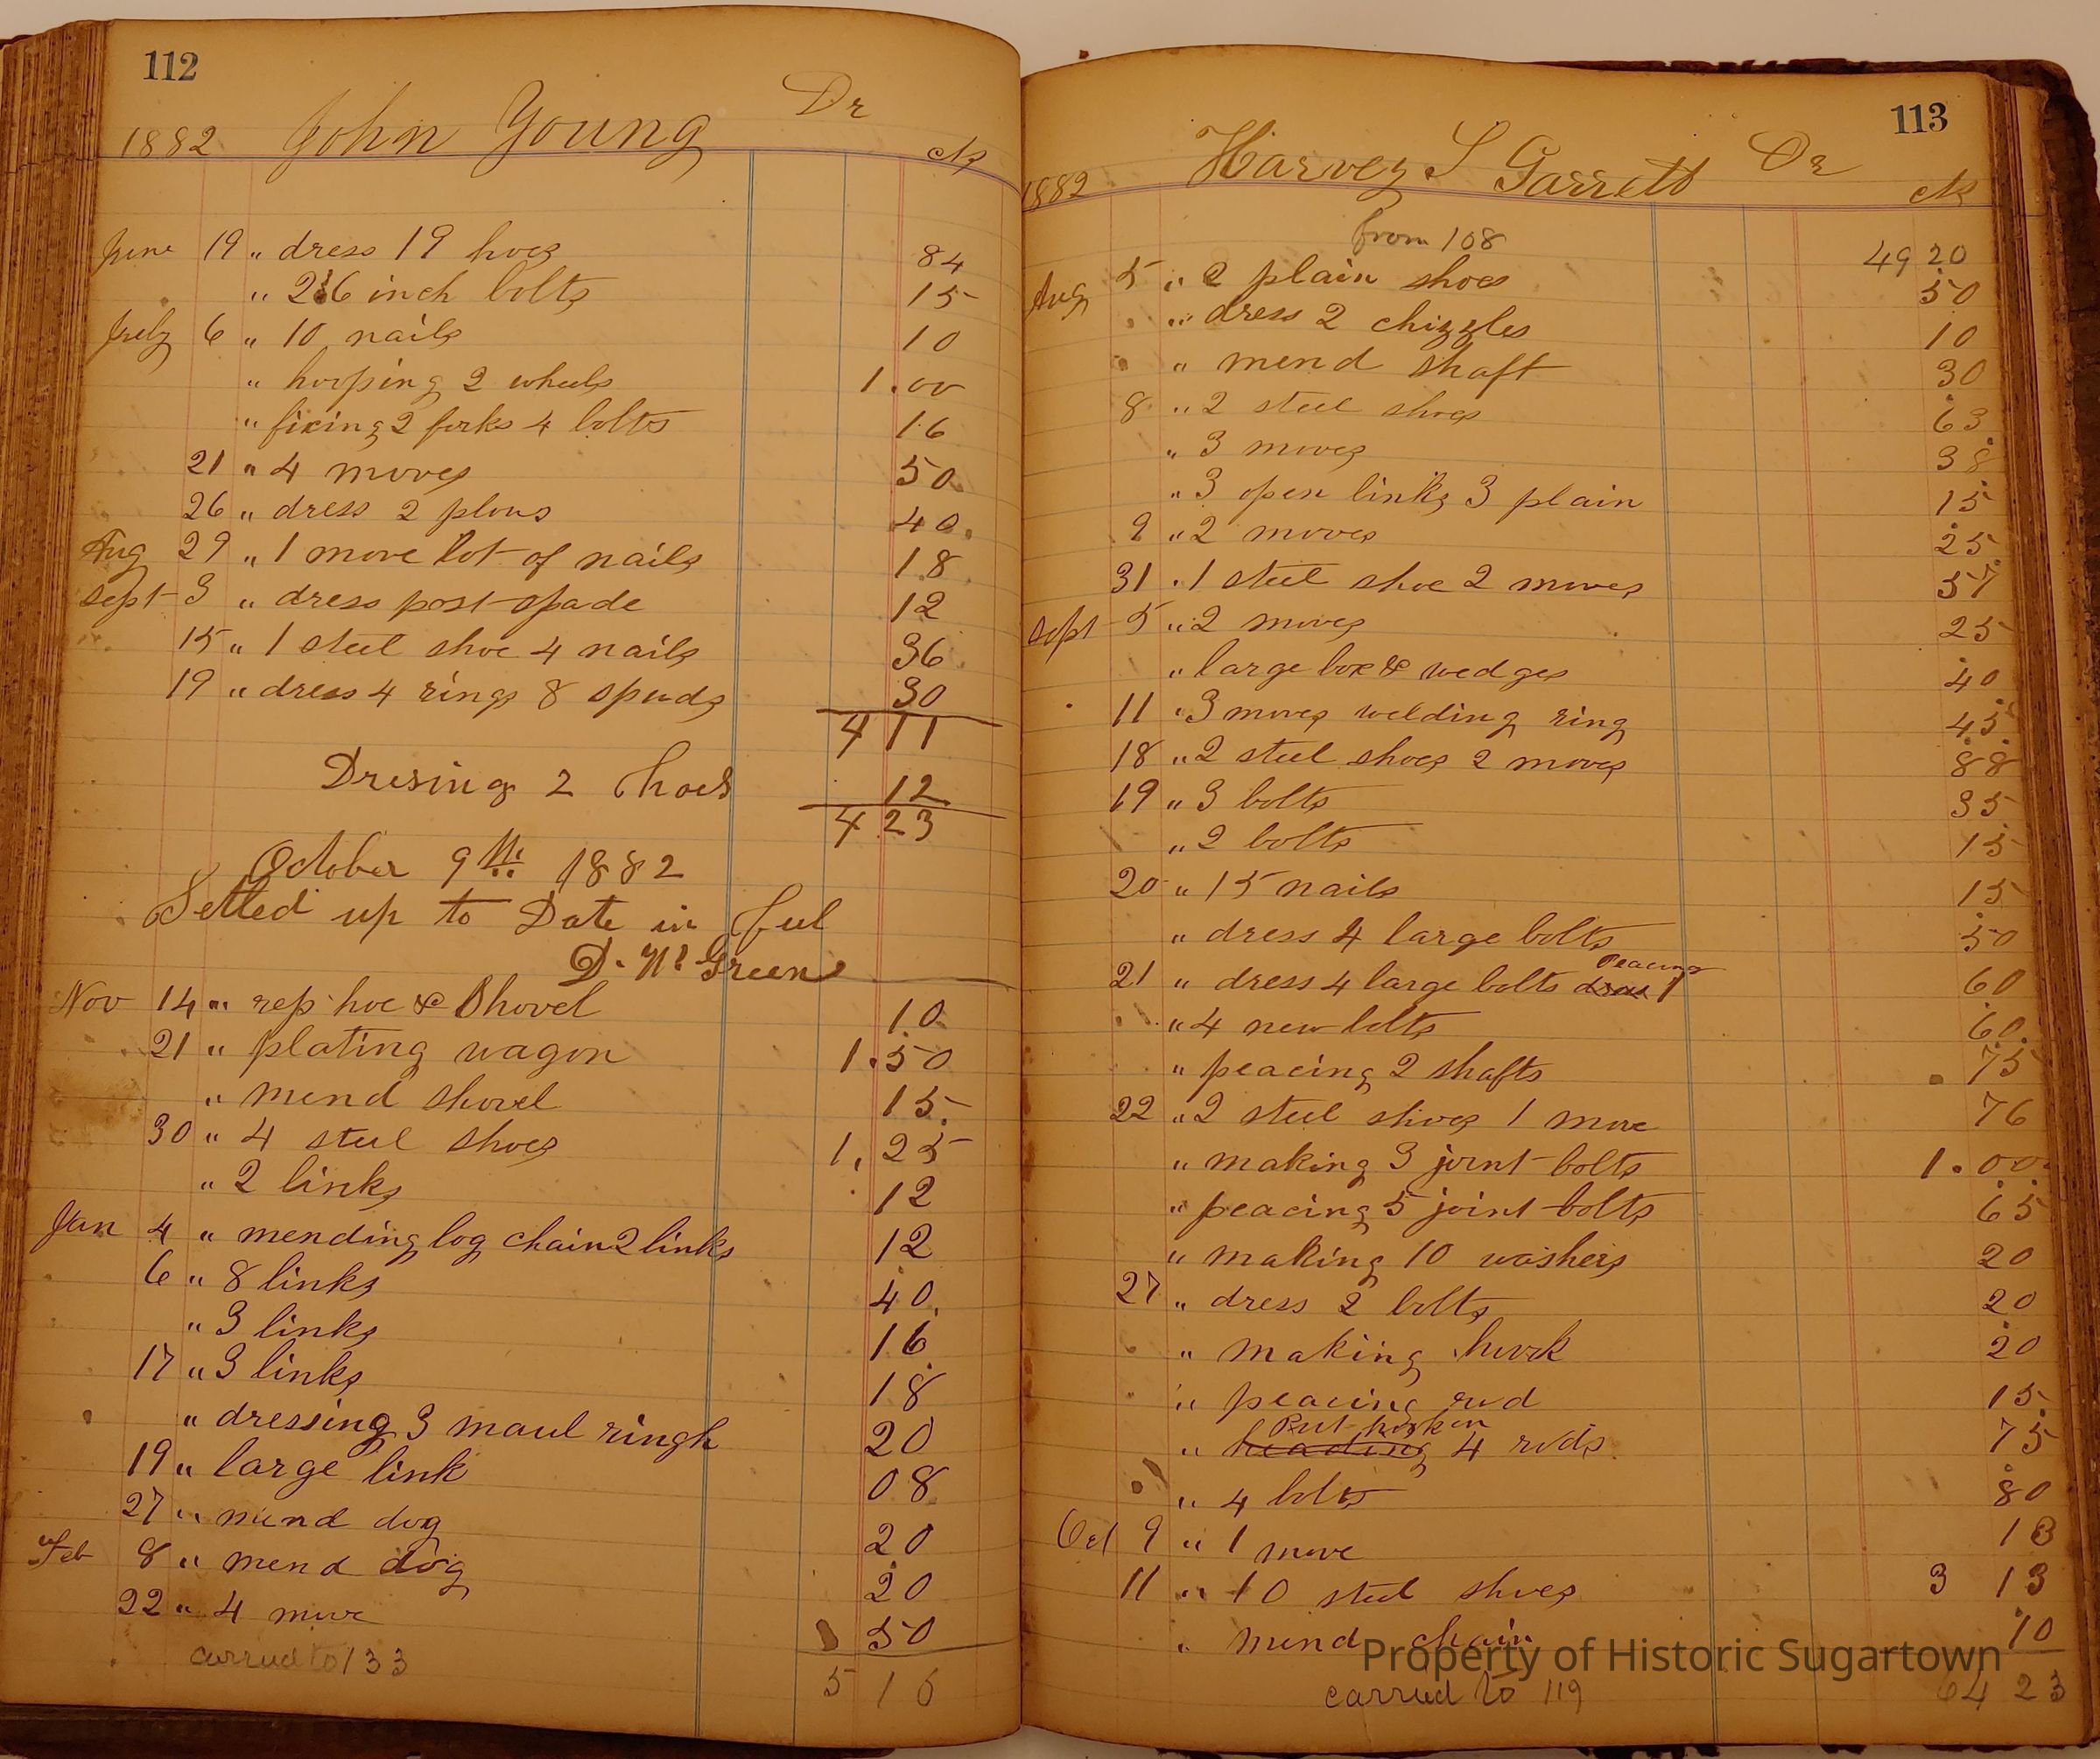 112
1882 John Young Dr
ck
June 19 " dress 19 hoes 84
" 2 6 inch bolts 15
July 6 " 10 nails 10
" hooping 2 wheels 1.00
" fixing 2 forks 4 bolts 16
21 " 4 moves 50
26 " dress 2 plows 40
Aug 29 " 1 move lot of nails 18
Sept 3 " dress post spade 12
15 " 1 steel shoe 4 nails 36
19 " dress 4 rings 8 spuds 30
4 11
Dresing 2 hoes 12
4 23
October 9th 1882
Setled up to Date in ful
D. N. Green
Nov 14 " rep hoe & Shovel 10
21 " plating wagon 1.50
" mend shovel 15
30 " 4 steel shoes 1,25
" 2 links 12
Jan 4 " mending log chain 2 links 12
6 " 8 links 40
" 3 links 16
17 " 3 links 18
" dressing 3 maul ringh 20
19 " large link 08
27 " mend dog 20
Feb 8 " mend dog 20
22 " 4 move 50
carrued to 133 5 16
113
1882 Harvey S Garrett Dr
ck
from 108 49 20
Aug 5 " 2 plain shoes 50
" dress 2 chizzles 10
" mend shaft 30
8 " 2 steel shoes 63
" 3 moves 38
" 3 open links 3 plain 15
9 " 2 moves 25
31 " 1 steel shoe 2 moves 57
Sept 5 " 2 moves 25
" large box & wedges 40
11 " 3 moves welding ring 45
18 " 2 steel shoes 2 moves 88
19 " 3 bolts 35
" 2 bolts 15
20 " 15 nails 15
" dress 4 large bolts 50
21 " dress 4 large bolts dress peacing 1 60
" 4 new bolts 60
" peacing 2 shafts 75
22 " 2 steel shoes 1 move 76
" making 3 joint bolts 1.00
" peacing 5 joint bolts 65
" making 10 washers 20
27 " dress 2 bolts 20
" making hook 20
" peacing rod 15
Put hook on
" heading 4 rods 75
" 4 bolts 80
Oct 9 " 1 move 13
11 " 10 steel shoes 3 13
" mend chain 10
carrued to 119 64 23
Property of Historic Sugartown